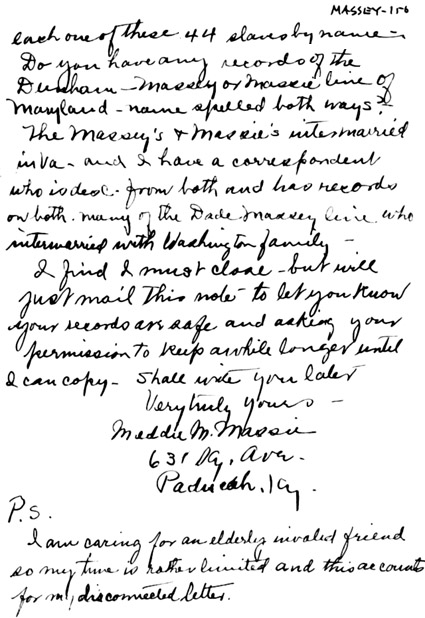 MASSEY-156
each one of these 44 slaves by name -
Do you have any records of the
Dunham - Massey or Massie line of
Maryland - name spelled both ways?
The Massey's & Massie's intermarried
in Va - and I have a correspondent
who is desc. from both and has records
on both. Many of the Dade Massey line who
intermarried with Washington family -
I find I must close - but will
just mail this note to let you know
your records are safe and asking your
permission to keep awhile longer until
I can copy - Shall write you later
Very truly yours -
M. Massie
631 Ky. Ave.
Paducah, Ky.
P.S.
I am caring for an elderly invalid friend
so my time is rather limited and this accounts
for my disconnected letter.